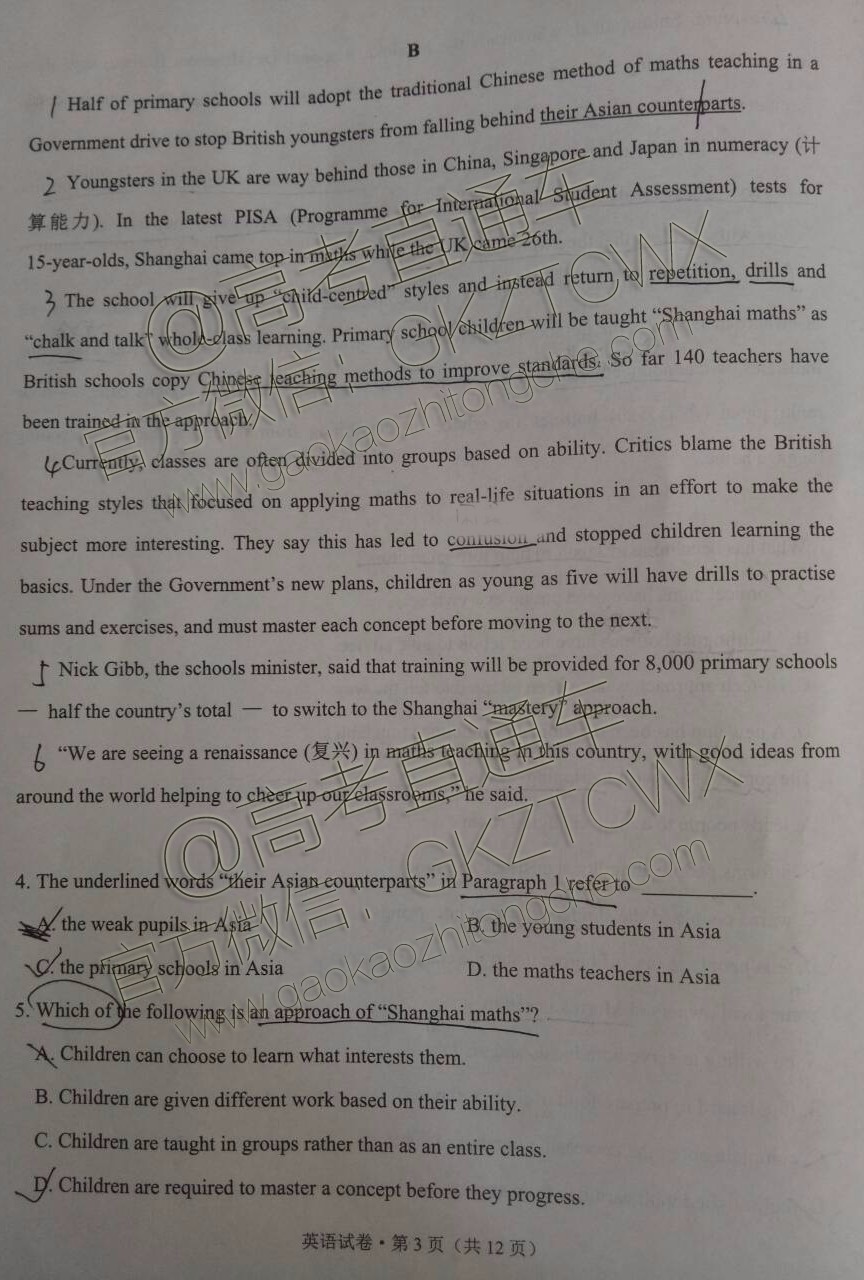 B
1 Half of primary schools will adopt the traditional Chinese method of maths teaching in a
Government drive to stop British youngsters from falling behind their Asian counterparts.
2 Youngsters in the UK are way behind those in China, Singapore and Japan in numeracy (计
算能力). In the latest PISA (Programme for International Student Assessment) tests for
15-year-olds, Shanghai came top in maths while the UK came 26th.
3 The school will give up "child-centred" styles and instead return to repetition, drills and
"chalk and talk" whole-class learning. Primary school children will be taught "Shanghai maths" as
British schools copy Chinese teaching methods to improve standards. So far 140 teachers have
been trained in the approach.
4 Currently, classes are often divided into groups based on ability. Critics blame the British
teaching styles that focused on applying maths to real-life situations in an effort to make the
subject more interesting. They say this has led to confusion and stopped children learning the
basics. Under the Government's new plans, children as young as five will have drills to practise
sums and exercises, and must master each concept before moving to the next.
5 Nick Gibb, the schools minister, said that training will be provided for 8,000 primary schools
— half the country's total — to switch to the Shanghai "mastery" approach.
6 "We are seeing a renaissance (复兴) in maths teaching in this country, with good ideas from
around the world helping to cheer up our classrooms," he said.
@高考直通车
官方微信：GKZTCWX
www.gaokaozhitongche.com
4. The underlined words "their Asian counterparts" in Paragraph 1 refer to ________.
A. the weak pupils in Asia B. the young students in Asia
C. the primary schools in Asia D. the maths teachers in Asia
5. Which of the following is an approach of "Shanghai maths"?
A. Children can choose to learn what interests them.
B. Children are given different work based on their ability.
C. Children are taught in groups rather than as an entire class.
D. Children are required to master a concept before they progress.
@高考直通车
官方微信：GKZTCWX
www.gaokaozhitongche.com
英语试卷·第3页（共12页）